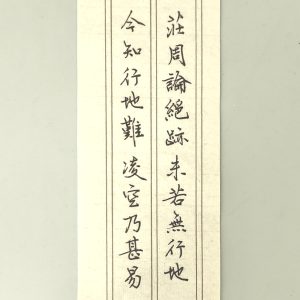 莊周論絕跡未若無行地
今知行地難凌空乃甚易